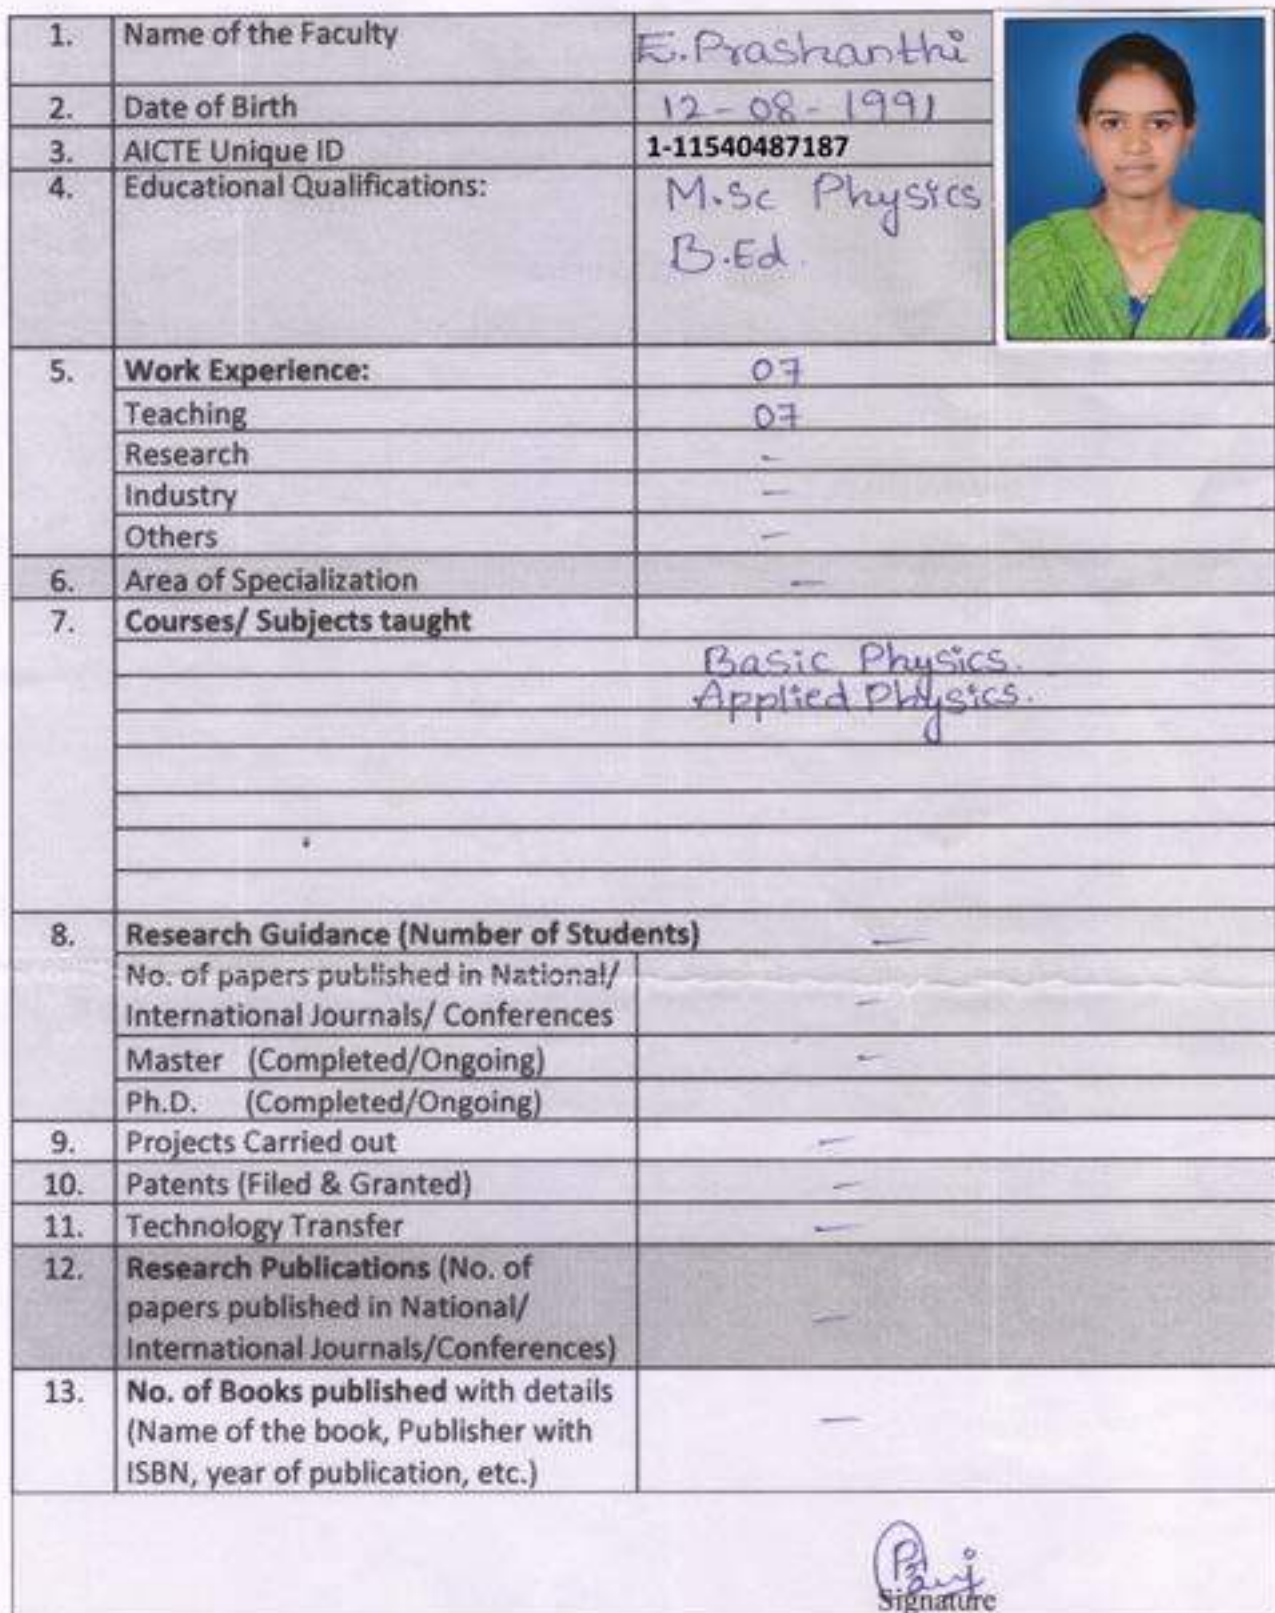 1. Name of the Faculty E.Prashanthi
2. Date of Birth 12-08-1991
3. AICTE Unique ID 1-11540487187
4. Educational Qualifications: M.Sc Physics
B.Ed.
5. Work Experience: 07
Teaching 07
Research -
Industry -
Others -
6. Area of Specialization -
7. Courses/ Subjects taught
Basic Physics.
Applied Physics.
8. Research Guidance (Number of Students) -
No. of papers published in National/
International Journals/ Conferences -
Master (Completed/Ongoing) -
Ph.D. (Completed/Ongoing)
9. Projects Carried out -
10. Patents (Filed & Granted) -
11. Technology Transfer -
12. Research Publications (No. of
papers published in National/ -
International Journals/Conferences)
13. No. of Books published with details
(Name of the book, Publisher with -
ISBN, year of publication, etc.)
Signature